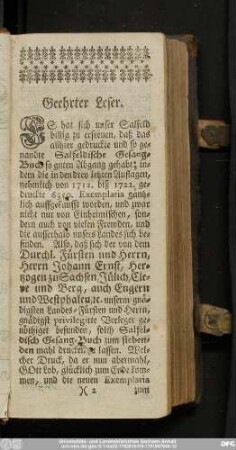 Geehrter Leser.
ES hat sich unser Salfeld
billig zu erfreuen, daß das
allhier gedruckte und so ge-
nandte Salfeldische Gesang-
Buch so guten Abgang gehabt, in-
dem die in den drey letzten Auflagen,
nehmlich von 1712. biß 1722. ge-
druckte Exemplaria gäntz-
lich auffgekaufft worden, und zwar
nicht nur von Einheimischen, son-
dern auch von vielen Fremden, und
die ausserhalb unsers Landes sich be-
finden. Also, daß sich der von dem
Durchl. Fürsten und Herrn,
Herrn Johann Ernst, Her-
zogen zu Sachsen, Jülich, Cle-
ve und Berg, auch Engern
und Westphalen, ꝛc. unserm gnä-
digsten Landes-Fürsten und Herrn,
gnädigst privilegirte Verleger ge-
nöthiget befunden, solch Salfel-
disch Gesang-Buch zum sieben-
den mahl drucken zu lassen. Wel-
cher Druck, da er nun abermahl,
GOtt Lob, glücklich zum Ende kom-
men, und die neuen Exemplaria
2 zum